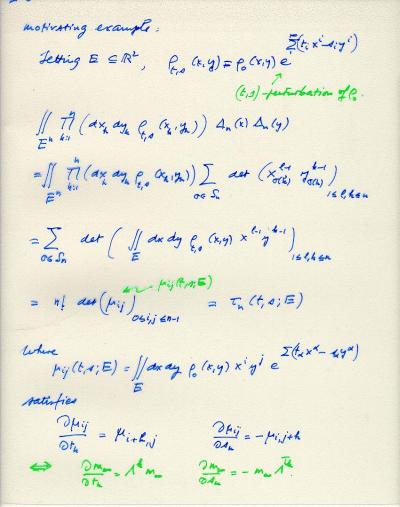 motivating example:
Setting E ⊆ ℝ², ρ_{t,s}(x,y) = ρ_0(x,y) e^{Σ(t_i x^i - s_i y^i)}
(t,s)-perturbation of ρ_0.
∬_{E^n} ∏_{k=1}^{n} (dx_k dy_k ρ_{t,s}(x_k,y_k)) Δ_n(x) Δ_n(y)
= ∬_{E^n} ∏_{k=1}^{n} (dx_k dy_k ρ_{t,s}(x_k,y_k)) Σ_{σ∈S_n} det (x_{σ(k)}^{ℓ-1} y_{σ(k)}^{k-1})_{1≤ℓ,k≤n}
= Σ_{σ∈S_n} det (∬_E dx dy ρ_{t,s}(x,y) x^{ℓ-1} y^{k-1})_{1≤ℓ,k≤n}
μ_{ij}(t,s;E)
= n! det (μ_{ij})_{0≤i,j≤n-1} = τ_n(t,s;E)
where
μ_{ij}(t,s;E) = ∬_E dx dy ρ_0(x,y) x^i y^j e^{Σ(t_α x^α - s_α y^α)}
satisfies
∂μ_{ij}/∂t_k = μ_{i+k,j} ∂μ_{ij}/∂s_k = -μ_{i,j+k}
⇔ ∂m_∞/∂t_k = Λ^k m_∞ ∂m_∞/∂s_k = -m_∞ Λ^{⊤k}.